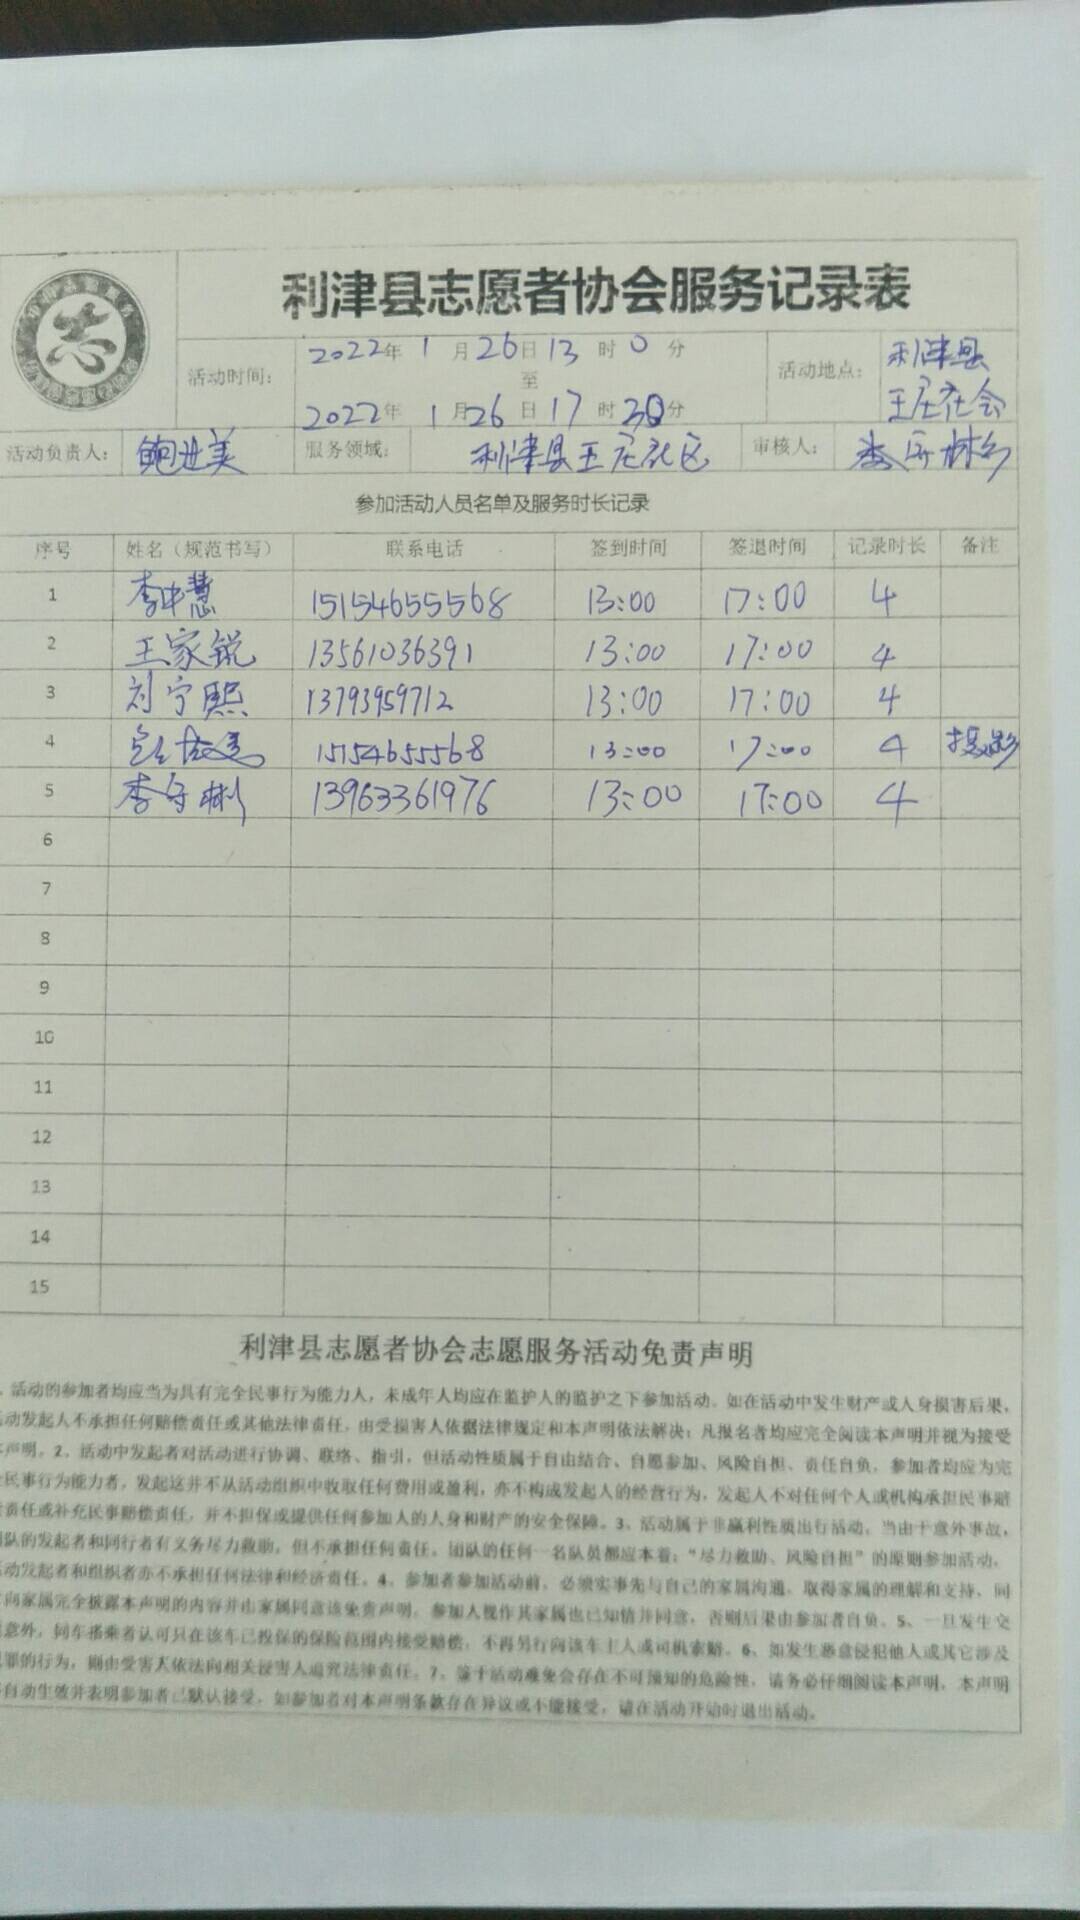 志
利津县志愿者协会服务记录表
活动时间： 2022年 1 月 26日 13 时 0 分
至
2022年 1 月 26 日 17 时 30分
活动地点： 利津县
王庄社会
活动负责人： 鲍进美 服务领域： 利津县王庄社区 审核人： 李守彬
参加活动人员名单及服务时长记录
序号 姓名（规范书写） 联系电话 签到时间 签退时间 记录时长 备注
1 李中慧 15154655568 13:00 17:00 4
2 王家锐 13561036391 13:00 17:00 4
3 刘宁熙 13793959712 13:00 17:00 4
4 15154655568 13:00 17:00 4 摄影
5 李守彬 13963361976 13:00 17:00 4
6
7
8
9
10
11
12
13
14
15
利津县志愿者协会志愿服务活动免责声明
、活动的参加者均应当为具有完全民事行为能力人，未成年人均应在监护人的监护之下参加活动。如在活动中发生财产或人身损害后果，
动发起人不承担任何赔偿责任或其他法律责任，由受损害人依据法律规定和本声明依法解决；凡报名者均应完全阅读本声明并视为接受
声明。2、活动中发起者对活动进行协调、联络、指引，但活动性质属于自由结合、自愿参加、风险自担、责任自负，参加者均应为完
民事行为能力者，发起这并不从活动组织中收取任何费用或盈利，亦不构成发起人的经营行为，发起人不对任何个人或机构承担民事赔
责任或补充民事赔偿责任，并不担保或提供任何参加人的人身和财产的安全保障。3、活动属于非赢利性质出行活动，当由于意外事故，
队的发起者和同行者有义务尽力救助，但不承担任何责任。团队的任何一名队员都应本着：“尽力救助、风险自担”的原则参加活动，
动发起者和组织者亦不承担任何法律和经济责任。4、参加者参加活动前，必须实事先与自己的家属沟通，取得家属的理解和支持、同
向家属完全披露本声明的内容并由家属同意该免责声明，参加人视作其家属也已知情并同意，否则后果由参加者自负。5、一旦发生交
意外，同车搭乘者认可只在该车已投保的保险范围内接受赔偿，不再另行向该车主人或司机索赔。6、如发生恶意侵犯他人或其它涉及
罪的行为，则由受害人依法向相关侵害人追究法律责任。7、鉴于活动难免会存在不可预知的危险性，请务必仔细阅读本声明，本声明
自动生效并表明参加者已默认接受，如参加者对本声明条款存在异议或不能接受，请在活动开始时退出活动。